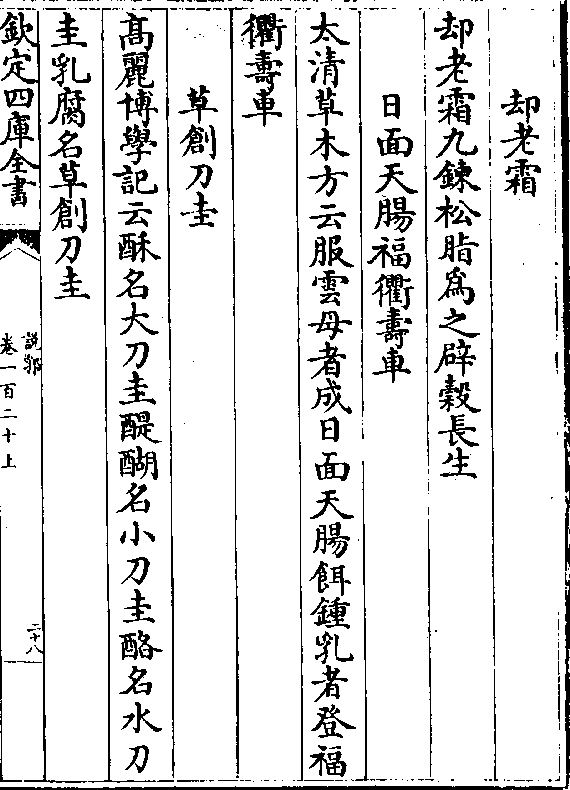 却老霜
却老霜九鍊松脂爲之辟穀長生
日面天腸福衢壽車
太清草木方云服雲母者成日面天腸餌鍾乳者登福
衢壽車
草創刀圭
髙麗博學記云酥名大刀圭醍醐名小刀圭酪名水刀
圭乳腐名草創刀圭
欽定四庫全書
説郛
卷一百二十上
二十八